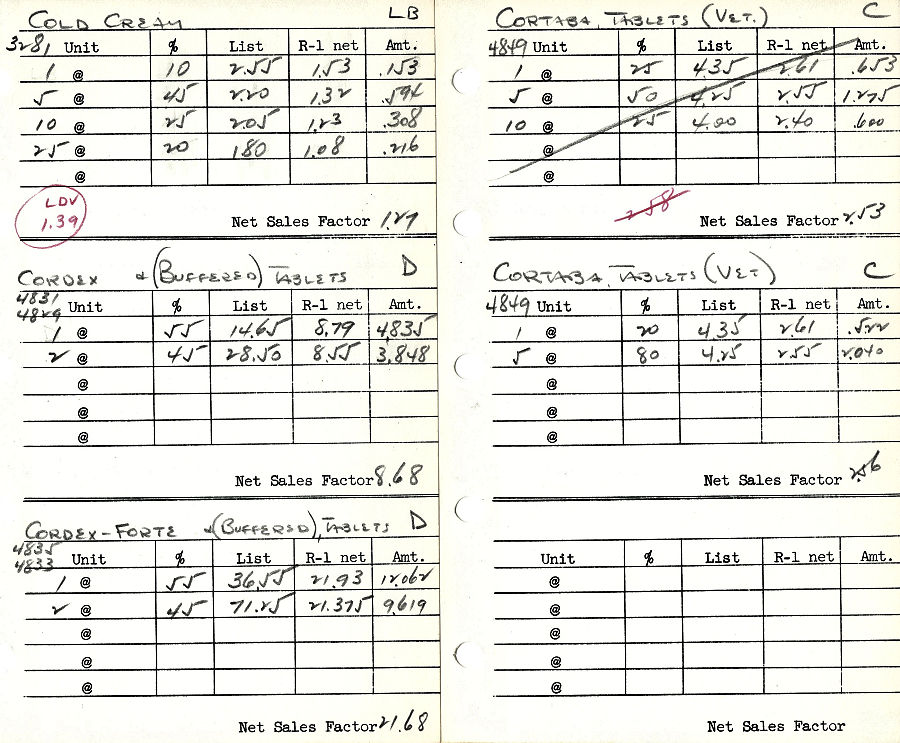 COLD CREAM LB
3281 Unit % List R-1 net Amt.
1 @ 10 2.55 1.53 .153
5 @ 45 2.20 1.32 .594
10 @ 25 2.05 1.23 .308
25 @ 20 1.80 1.08 .216
@
LDV
1.39
Net Sales Factor 1.27
CORDEX & (BUFFERED) TABLETS D
4831
4829 Unit % List R-1 net Amt.
1 @ 55 14.65 8.79 4.835
2 @ 45 28.50 8.55 3.848
@
@
@
Net Sales Factor 8.68
CORDEX-FORTE & (BUFFERED), TABLETS D
4835
4833 Unit % List R-1 net Amt.
1 @ 55 36.55 21.93 12.062
2 @ 45 71.25 21.375 9.619
@
@
@
Net Sales Factor 21.68
CORTABA, TABLETS (VET.) C
4849 Unit % List R-1 net Amt.
1 @ 25 4.35 2.61 .653
5 @ 50 4.25 2.55 1.275
10 @ 25 4.00 2.40 .600
@
@
2.58
Net Sales Factor 2.53
CORTABA, TABLETS (VET) C
4849 Unit % List R-1 net Amt.
1 @ 20 4.35 2.61 .522
5 @ 80 4.25 2.55 2.040
@
@
@
Net Sales Factor 2.56
Unit % List R-1 net Amt.
@
@
@
@
@
Net Sales Factor